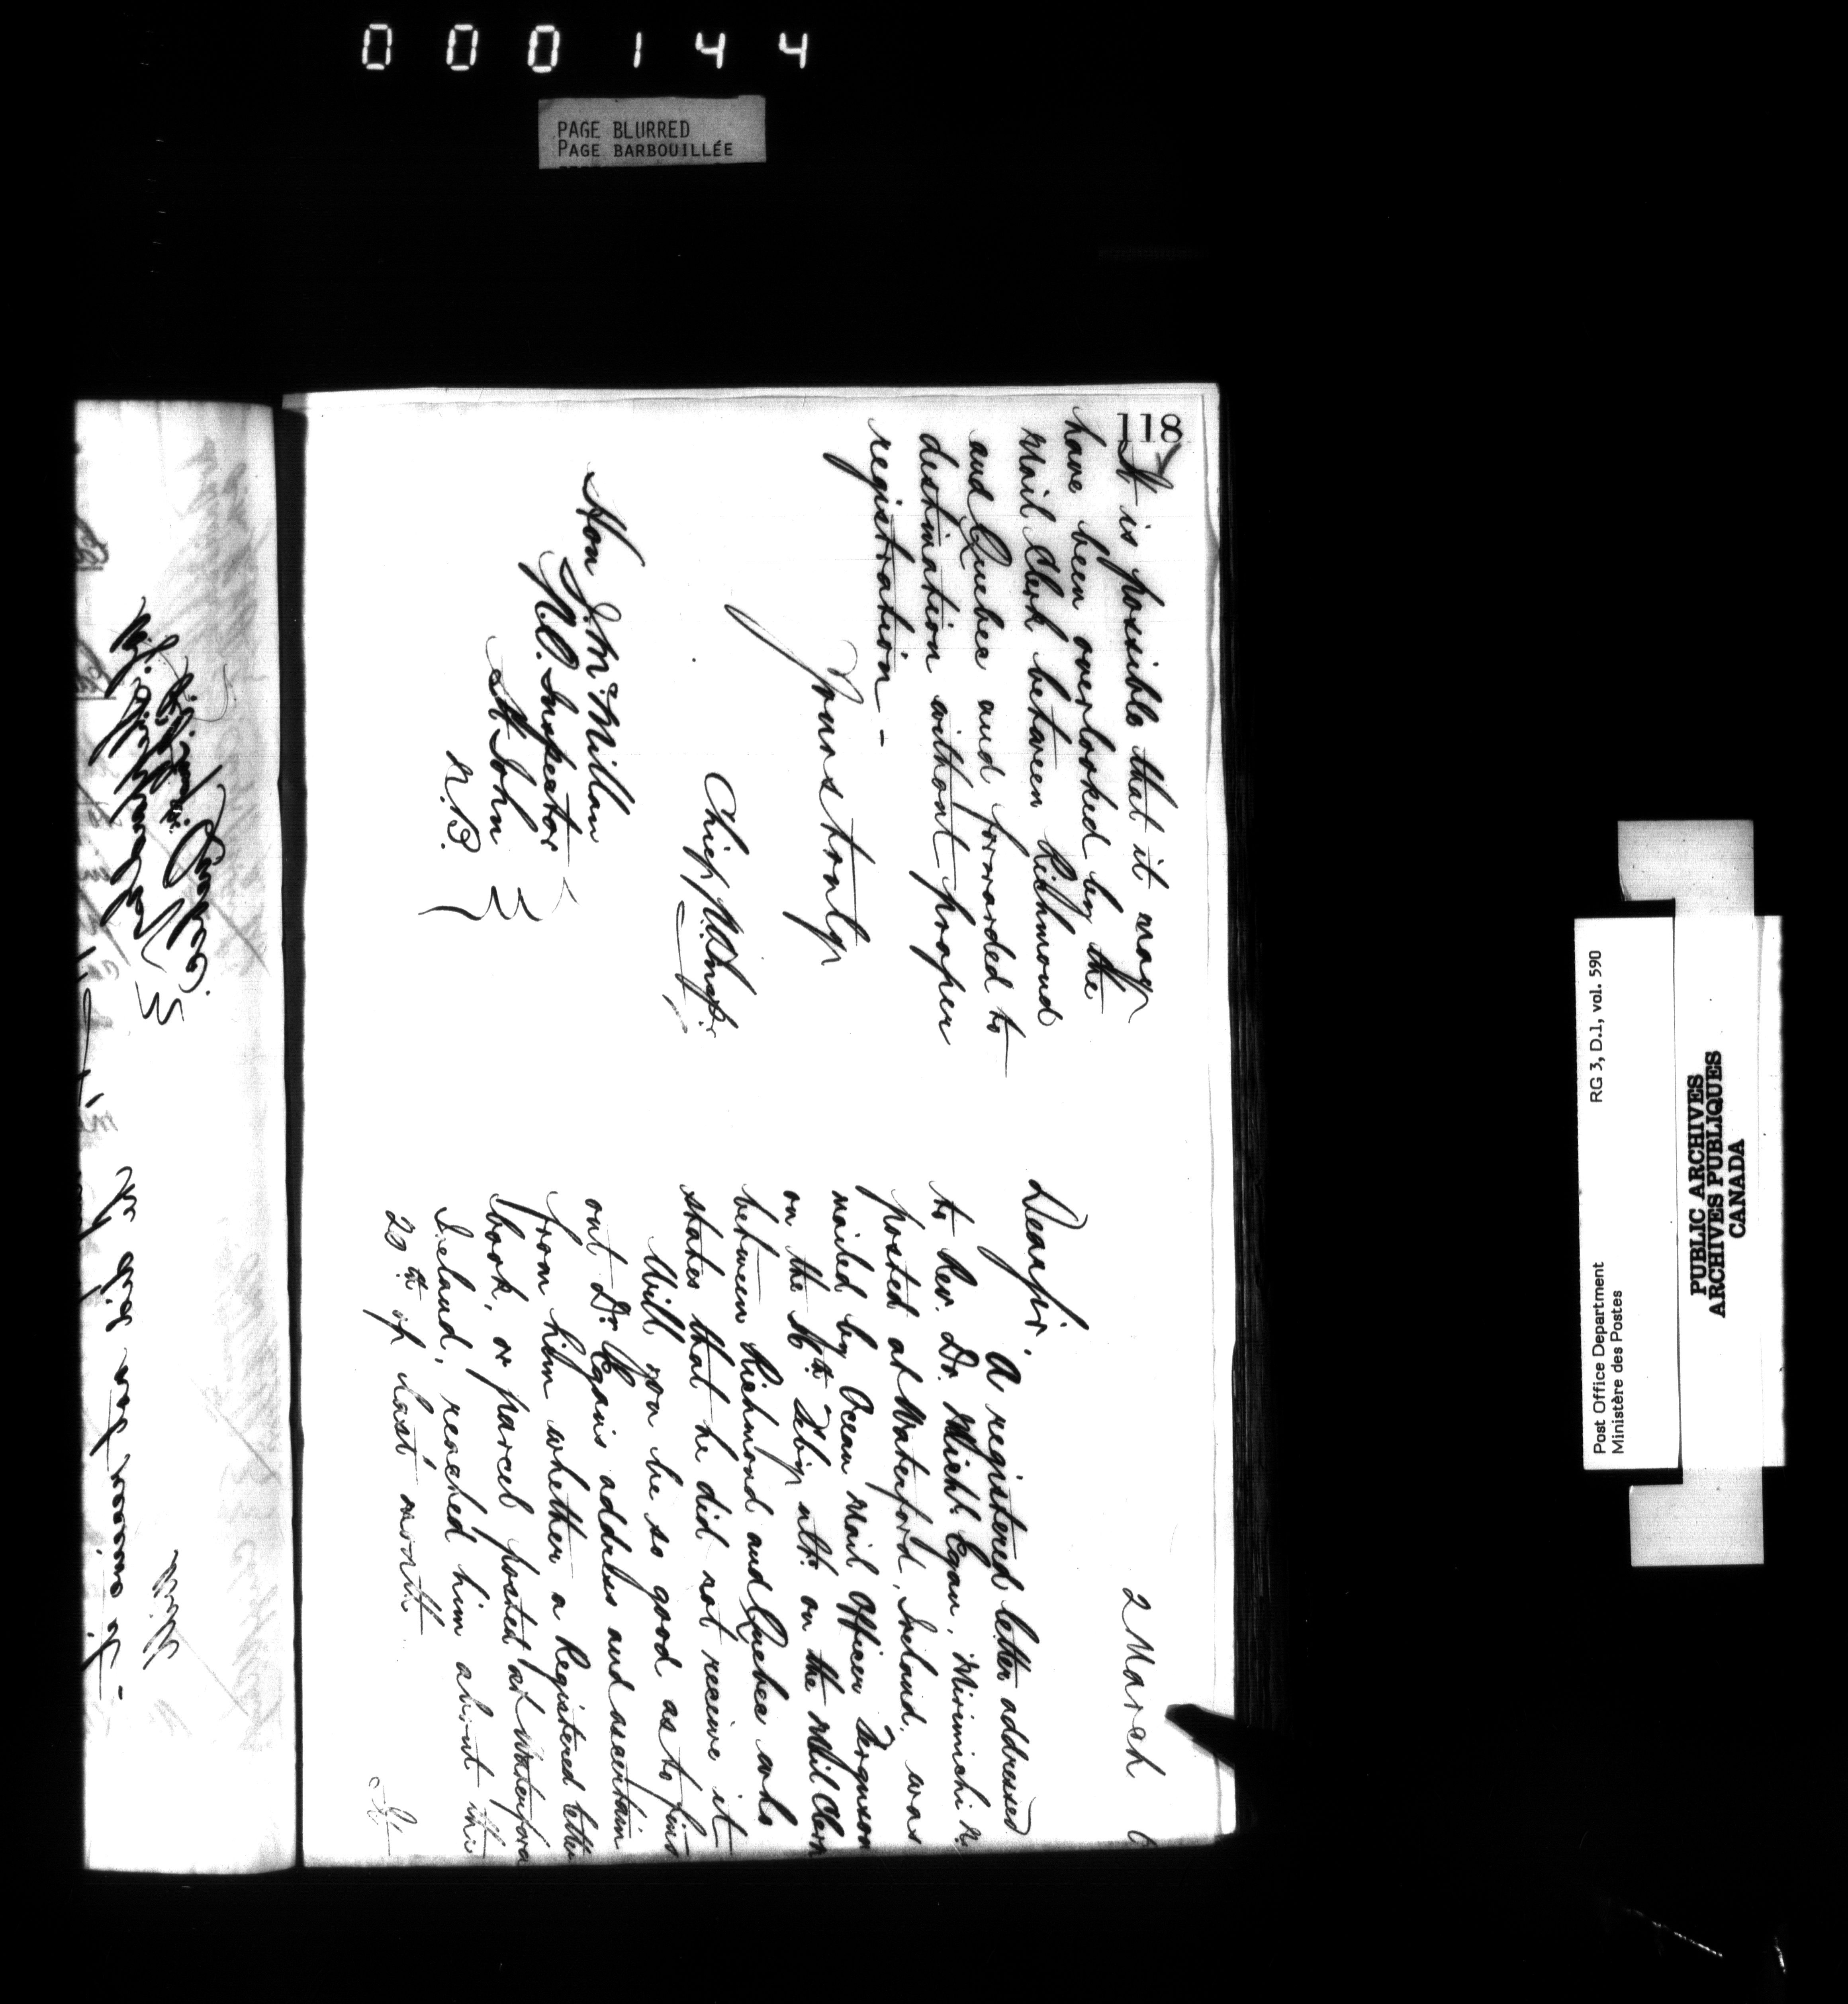 000144
PAGE BLURRED
PAGE BARBOUILLÉE
118
It is possible that it may
have been overlooked by the
Mail Clerk between Richmond
and Quebec and forwarded to
destination without proper
registration -
Yours truly
Chief P.O. Inspr.
Hon J. McMillan
P.O. Inspector
St John
N.B.
2 March
Dear Sir,
A registered letter addressed
to Rev. Dr. Michl. Egan, Mirimichi
posted at Waterford, Ireland, was
mailed by Ocean Mail Officer Ferguson
on the 16th Feby ulto. on the Mail Clerk
between Richmond and Quebec who
states that he did not receive it
Will you be so good as to find
out Dr. Egan's address and ascertain
from him whether a Registered letter
book, or parcel posted at Waterford
Ireland, reached him about the
20th of last month
It
did not receive it -
Post Office Department
Ministère des Postes
RG 3, D.1, vol. 590
PUBLIC ARCHIVES
ARCHIVES PUBLIQUES
CANADA